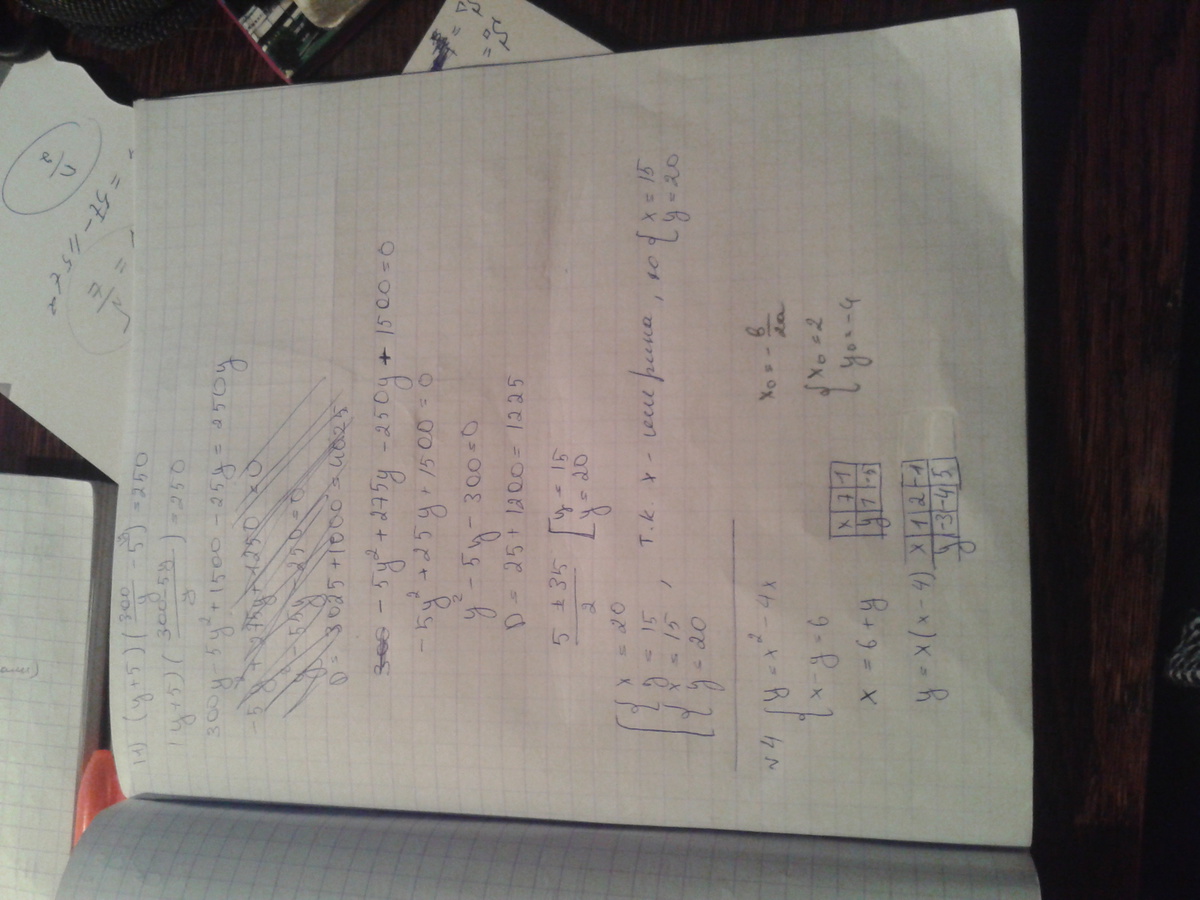 1) (y+5)(300/y - 5) = 250
(y+5)(300-5y/y) = 250
300y - 5y² + 1500 - 25y = 250y
-5y² + 275y + 1250 = 0
y² - 55y - 250 = 0
D = 3025 + 1000 = 4025
300 - 5y² + 275y - 250y + 1500 = 0
-5y² + 25y + 1500 = 0
y² - 5y - 300 = 0
D = 25 + 1200 = 1225
5 ± 35 / 2 [ y = 15
y = 20
[ { x = 20
y = 15
{ x = 15
y = 20 , т.к. x - ширина, то { x = 15
y = 20
№4 { y = x² - 4x
x - y = 6
x₀ = - b/2a
{ x₀ = 2
y₀ = -4
x = 6 + y
x 7 1
y 1 -5
y = x(x - 4)
x 1 2 -1
y -3 -4 5